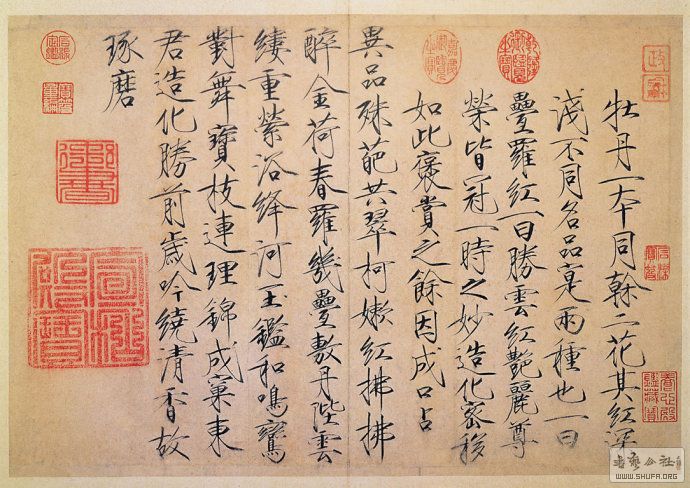 牡丹一本同幹二花其紅深
淺不同名品寔兩種也一曰
疊羅紅一曰勝雲紅艷麗尊
榮皆冠一時之妙造化密移
如此褒賞之餘因成口占
異品殊葩共翠柯嫩紅拂拂
醉金荷春羅幾疊敷丹陛雲
縷重縈浴絳河玉鑑和鳴鸞
對舞寶枝連理錦成窠東
君造化勝前歲吟繞清香故
琢磨
嘉慶御覽之寶
養心殿鑑藏寶
WWW.SHUFA.ORG